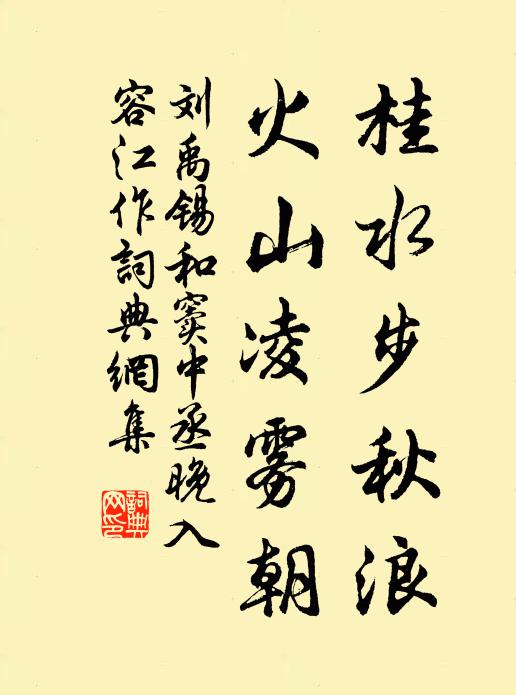 桂水步秋浪
火山凌雾朝
刘禹锡和窦中丞晚入
容江作词典網集
詞典
网印